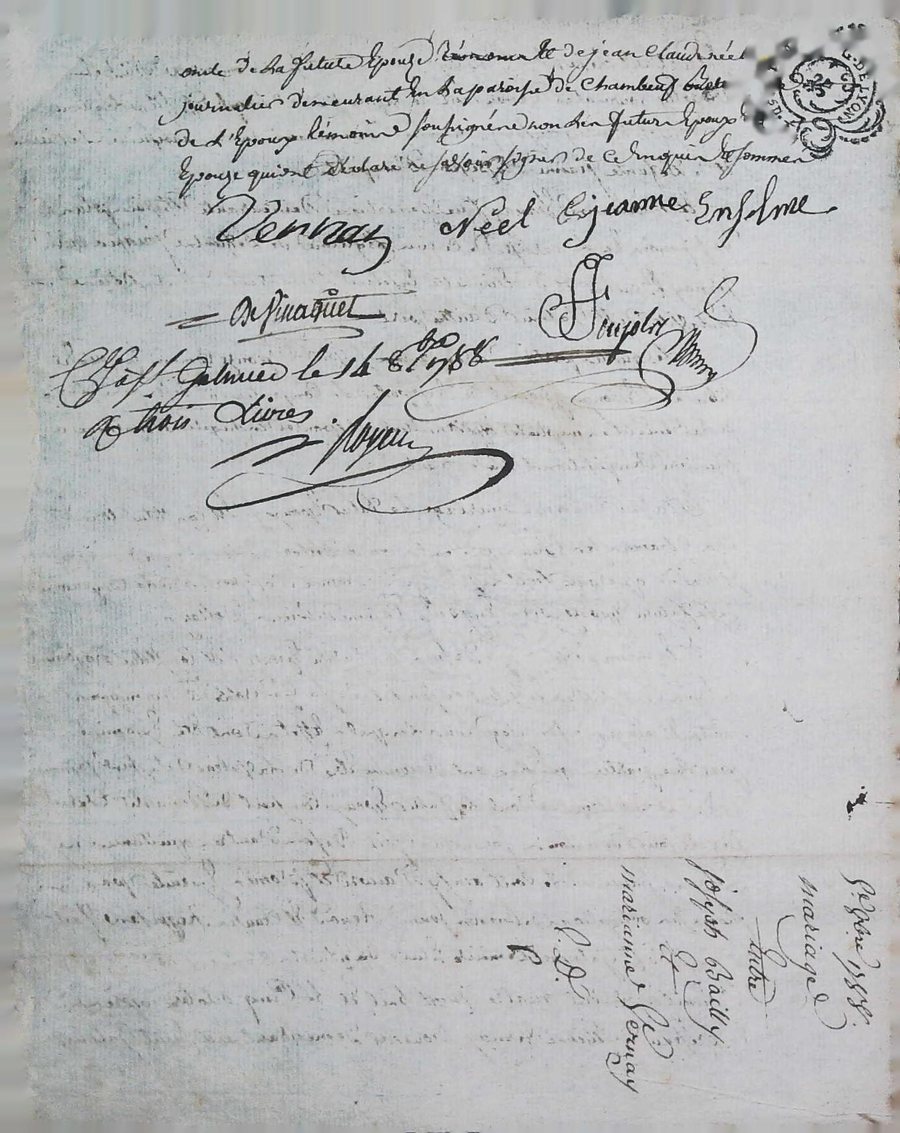 oncle de la future Epouze temoins et de jean Claude néel
journalier demeurant En la paroisse de Chambeuf
de L'Epoux témoins soussignéz non les futurs Epoux
Epouze qui ont déclaré ne savoir signer de ce Enquis et sommés
Vernay Néel jeanne Enselme
Devinaquet
Goujolin
C. à St Galmier le 14 8bre 1788
R trois Livres. Royer
G. DE LYON
8e 8bre 1788
mariage
Entre
joseph Bailly
Et
marianne Vernay